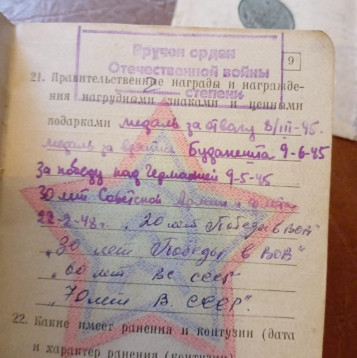 Вручен орден
Отечественной войны
2 степени
9
21. Правительственные награды и награжде-
ния нагрудными знаками и ценными
подарками медаль за отвагу 8/III-45.
медаль за взятие Будапешта 9-6-45
За победу над Германией 9-5-45
30 лет Советской Армии и флота
22-2-48г. „20 лет Победы в ВОВ"
„30 лет Победы в ВОВ"
„60 лет ВС СССР"
„70 лет В. СССР".
22. Какие имеет ранения и контузии (дата
и характер ранения (контузии)